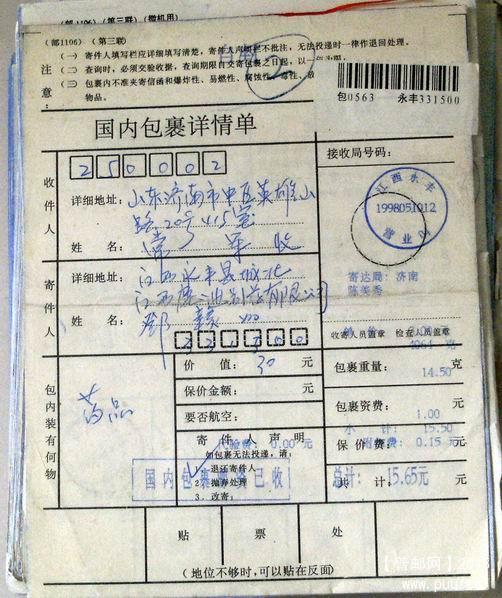 (邮1106) (第三联) (微机用)
(邮1106) (第三联)
注意:
(一) 寄件人填写栏应详细填写清楚,寄件人声明栏不批注,无法投递时一律作退回处理。
(二) 查询时,必须交验收据,查询期限自交寄包裹之日起,以一年为限。
(三) 包裹内不准夹寄信函和爆炸性、易燃性、腐蚀性、毒性、放
物品。
包0563 永丰331500
国内包裹详情单
接收局号码:
收件人
250002
详细地址: 山东济南市中区英雄山
路20号415室
姓名: 常 军 收
江西永丰
1998051012
营业
寄达局:济南
陈美秀
寄件人
详细地址: 江西永丰县城北
江西 制药有限公司
姓名: 邹
331500
收寄人员盖章 检查人员盖章
4064 克
包内装有何物
药品
价值: 30 元
保价金额: 元
要否航空:
寄件人声明
如包裹无法投递,请:
1. 退还寄件人
2. 抛弃处理
3. 改寄:
0.00 元
国内包裹 已收
包裹重量:
14.50
包裹资费: 元
1.00
小计: 15.50
保价费: 元
0.15 元
共计: 元
总计: 15.65元
贴 票 处
(地位不够时,可以贴在反面)